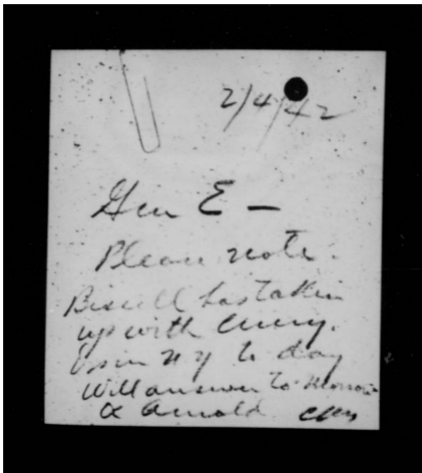 2/4/42
Gen E —
Please note.
Bissell has taken
up with
is in N Y to day
Will answer to
& Arnold